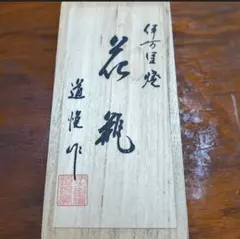 伊万里焼
花瓶
道悦作